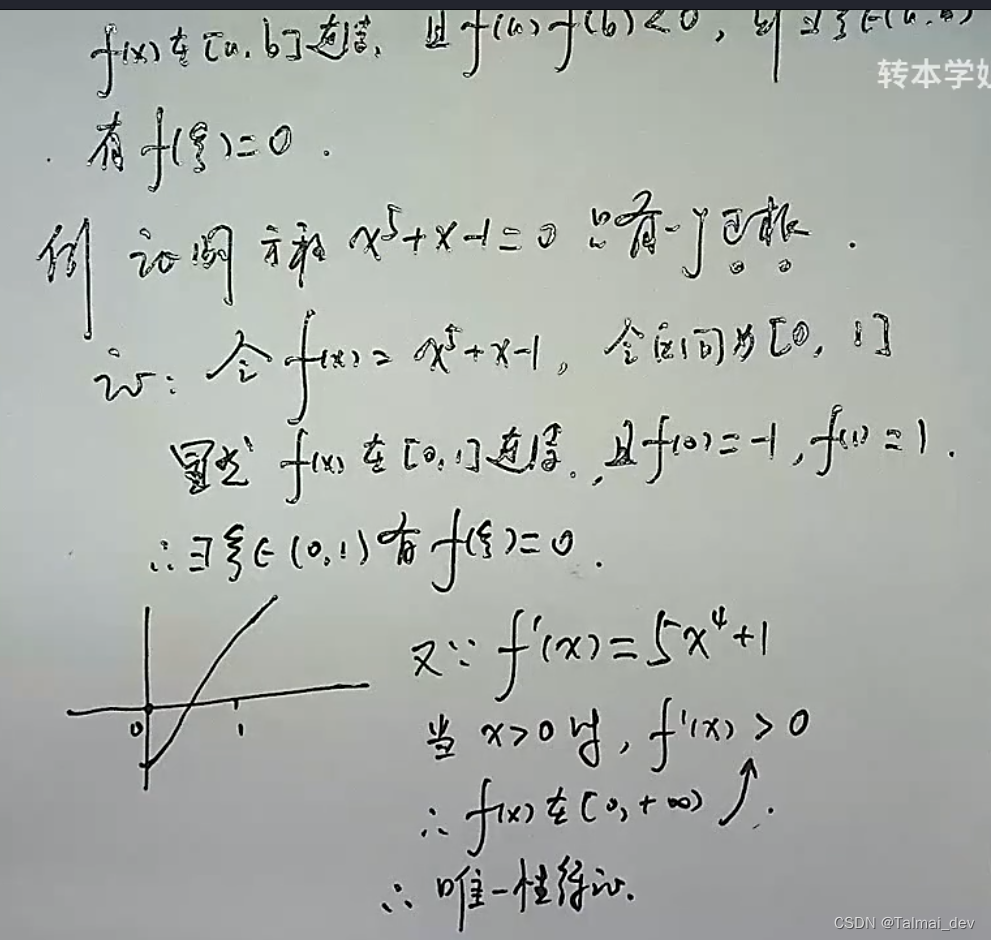 f(x)在[a,b]连续,且f(a)f(b)<0,则∃ξ∈(a,b)
转本学姐
有f(ξ)=0.
例 证明方程 x⁵+x-1=0 只有一个正根.
证: 令f(x)=x⁵+x-1, 令区间为[0, 1]
显然 f(x)在[0,1]连续,且f(0)=-1,f(1)=1.
∴∃ξ∈(0,1)有f(ξ)=0.
又∵f'(x)=5x⁴+1
0 1
当 x>0时, f'(x)>0
∴f(x)在[0,+∞)↗.
∴唯一性得证.
CSDN @Talmai_dev